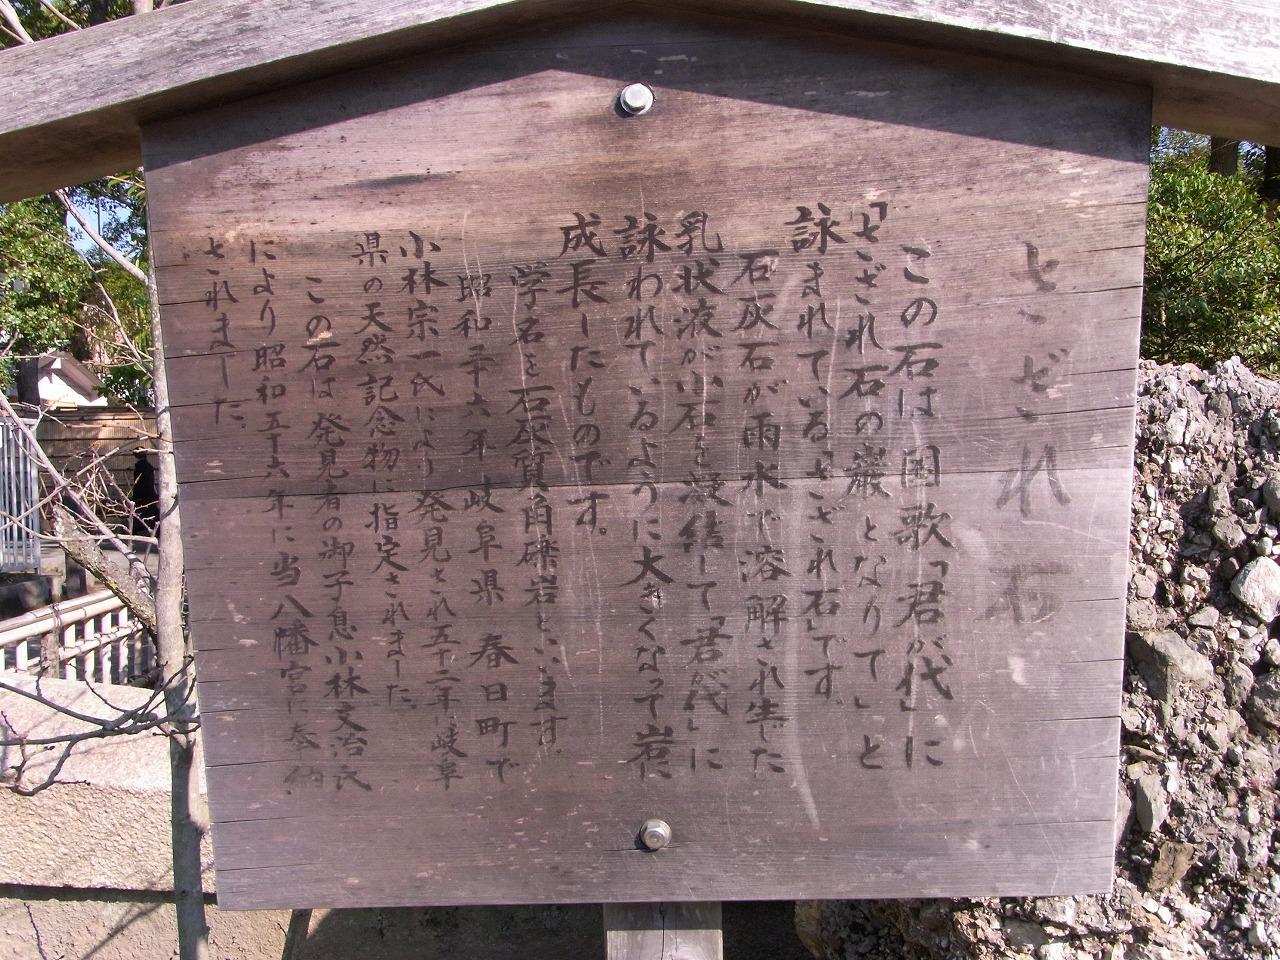 さざれ石
この石は 国歌「君が代」に
「さざれ石の巌となりて」と
詠まれている「さざれ石」です。
石灰石が雨水で溶解され生じた
乳状液が小石を凝結して「君が代」に
詠われているように大きくなって岩に
成長したものです。
学名を石灰質角礫岩といいます。
昭和三十六年 岐阜県 春日町で
小林宗一氏により発見され五十二年に岐阜
県の天然記念物に指定されました。
この石は 発見者の御子息小林文治氏
により昭和五十六年に当八幡宮に奉納
されました。